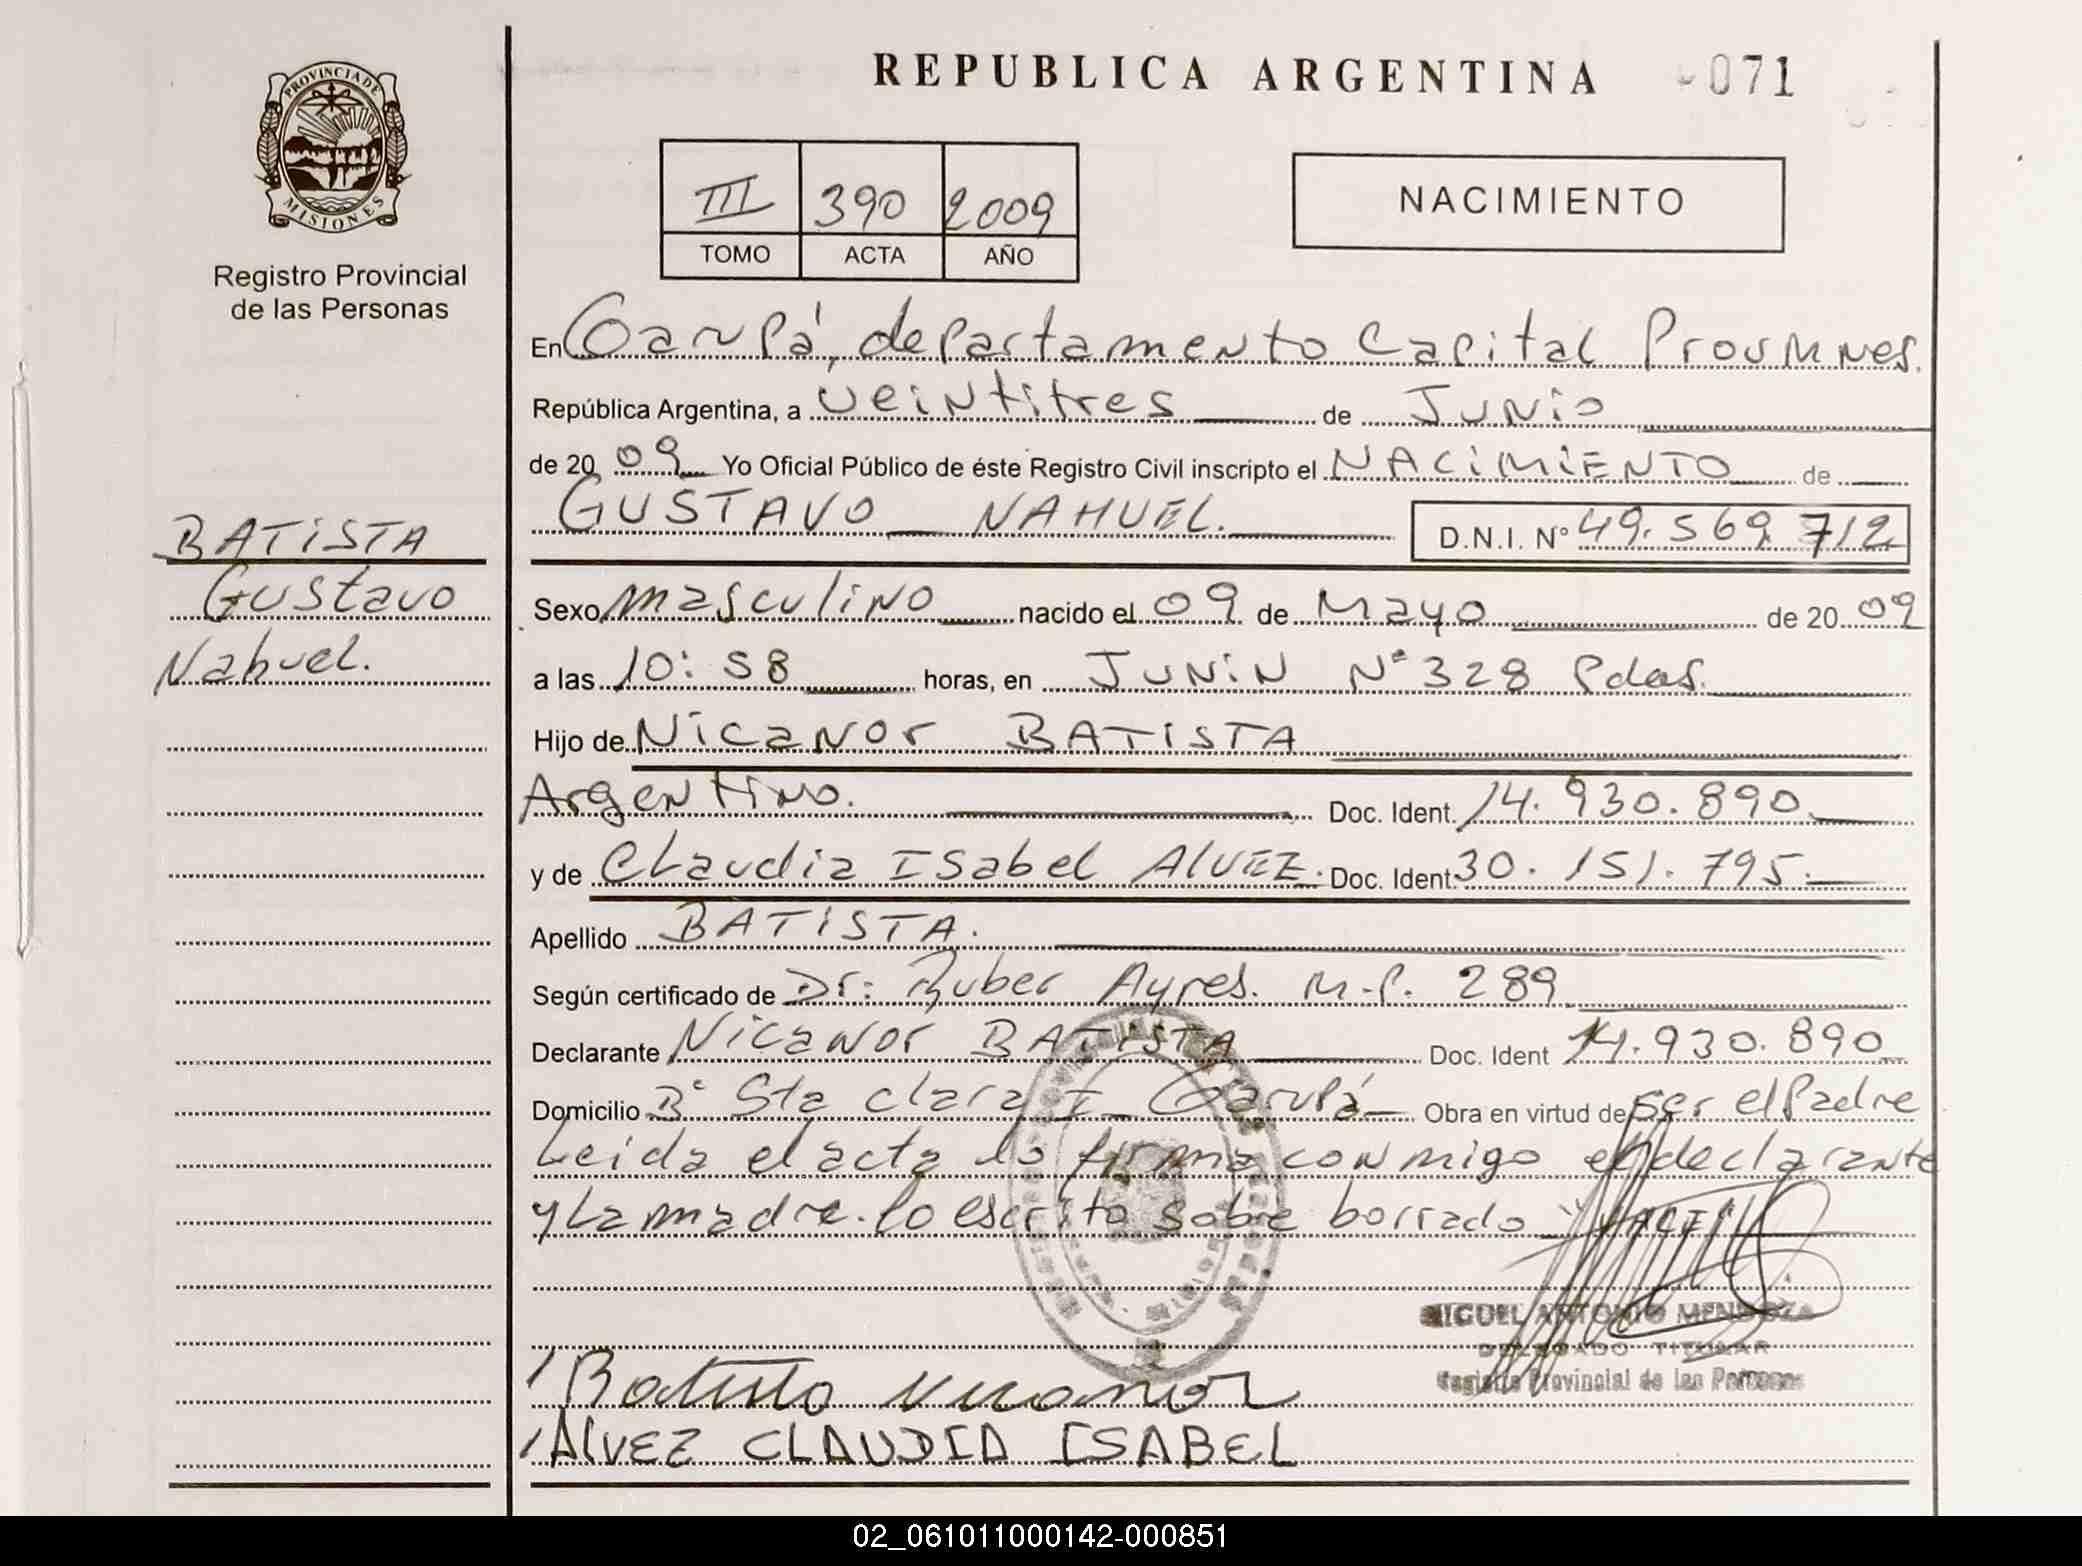 REPUBLICA ARGENTINA 071
PROVINCIA DE
MISIONES
Registro Provincial
de las Personas
III 390 2009
TOMO ACTA AÑO
NACIMIENTO
En Garupá, departamento Capital Prov Mnes.
República Argentina, a veintitres de Junio
de 20 09 Yo Oficial Público de éste Registro Civil inscripto el NACIMIENTO de
GUSTAVO NAHUEL. D.N.I. Nº 49.569.712
BATISTA
Gustavo
Nahuel.
Sexo masculino nacido el 09 de Mayo de 20 09
a las 10:58 horas, en JUNIN Nº 328 Pdas.
Hijo de Nicanor BATISTA
Argentino. Doc. Ident. 14.930.890
y de Claudia Isabel Alvez. Doc. Ident. 30.151.795.
Apellido BATISTA.
Según certificado de Dr: Ruber Ayres. M.P. 289
Declarante Nicanor BATISTA Doc. Ident 14.930.890
Domicilio Bº Sta Clara I Garupá Obra en virtud de ser el Padre
Leida el acta la firma conmigo el declarante
y La madre. lo escrito sobre borrado
MIGUEL ANTONIO MENDOZA
DELEGADO TITULAR
Registro Provincial de las Personas
Batista Nicanor
Alvez CLAUDIA ISABEL
02_061011000142-000851